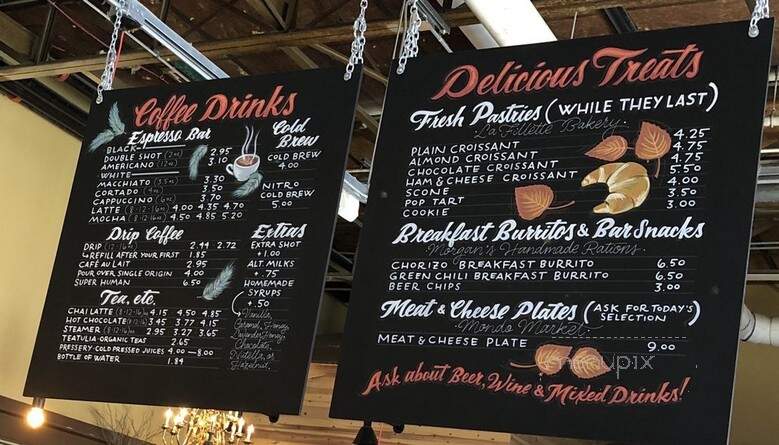 Coffee Drinks
Espresso Bar
BLACK
DOUBLE SHOT (2oz) 2.95
AMERICANO (12oz) 3.10
WHITE
MACCHIATO (3.5oz) 3.30
CORTADO (4oz) 3.50
CAPPUCCINO (6oz) 3.70
LATTE (8-12-16oz) 4.00 4.35 4.70
MOCHA (8-12-16oz) 4.50 4.85 5.20
Drip Coffee
DRIP (12-16oz) 2.44 2.72
REFILL AFTER YOUR FIRST 1.85
CAFÉ AU LAIT 2.95
POUR OVER SINGLE ORIGIN 4.00
SUPER HUMAN 6.50
Tea, etc.
CHAI LATTE (8-12-16oz) 4.15 4.50 4.85
HOT CHOCOLATE (8-12-16) 3.45 3.77 4.15
STEAMER (8-12-16oz) 2.95 3.27 3.65
TEATULIA ORGANIC TEAS 2.65
PRESSERY COLD PRESSED JUICES 4.00—8.00
BOTTLE OF WATER 1.84
Cold
Brew
COLD BREW
4.00
NITRO
COLD BREW
5.00
Extras
EXTRA SHOT
+1.00
ALT. MILKS
+.75
HOMEMADE
SYRUPS
+.50
Vanilla,
Caramel, Honey,
Lavender Honey,
Chocolate,
Nutella, or
Hazelnut.
Delicious Treats
Fresh Pastries (WHILE THEY LAST)
La Fillette Bakery
PLAIN CROISSANT 4.25
ALMOND CROISSANT 4.75
CHOCOLATE CROISSANT 4.75
HAM & CHEESE CROISSANT 5.50
SCONE 4.00
POP TART 3.50
COOKIE 3.00
Breakfast Burritos & Bar Snacks
Morgan's Handmade Rations
CHORIZO BREAKFAST BURRITO 6.50
GREEN CHILI BREAKFAST BURRITO 6.50
BEER CHIPS 3.00
Meat & Cheese Plates (ASK FOR TODAY'S SELECTION)
Mondo Market
MEAT & CHEESE PLATE 9.00
Ask about Beer, Wine & Mixed Drinks!